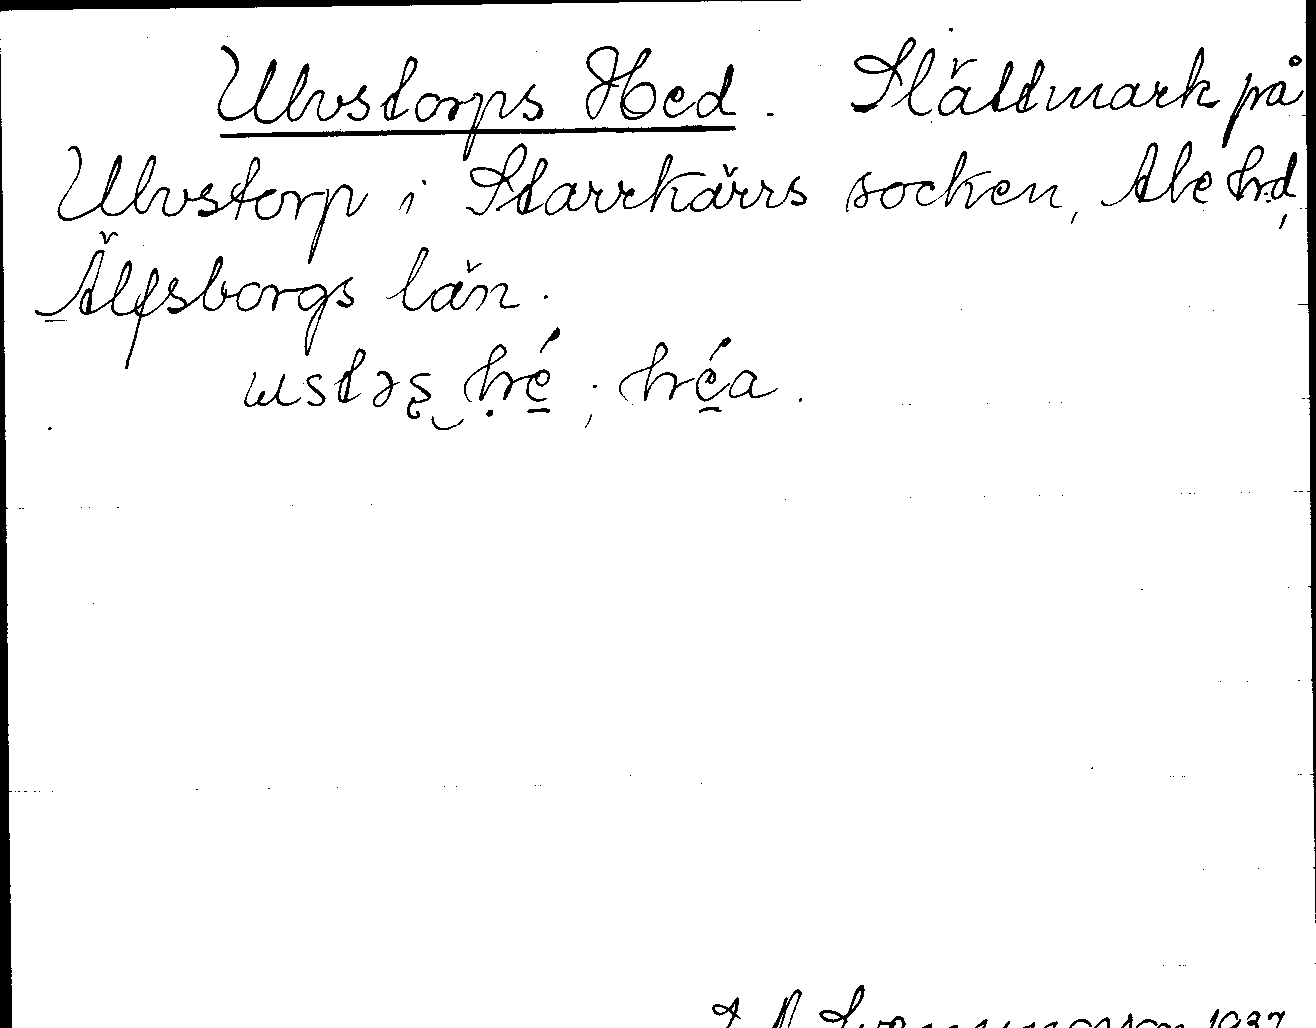 Ulvstorps Hed. Slättmark på
Ulvstorp i Starrkärrs socken, Ale hrd,
Älfsborgs län.
1937